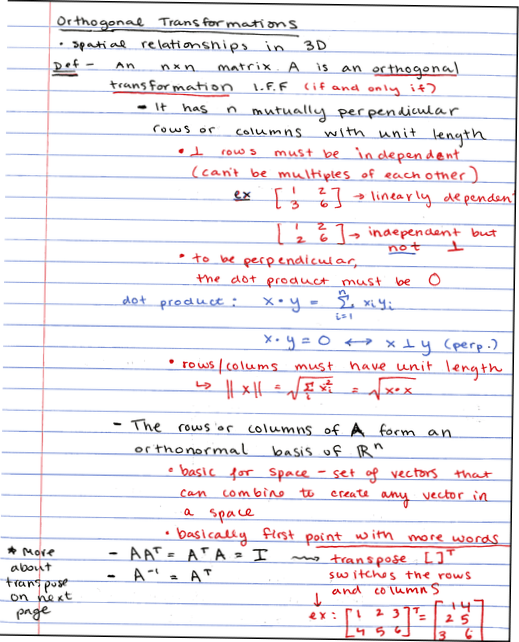 Orthogonal Transformations
• spatial relationships in 3D
Def - An nxn matrix A is an orthogonal
transformation I.F.F (if and only if)
- It has n mutually perpendicular
rows or columns with unit length
• ⊥ rows must be independent
(can't be multiples of each other)
ex [1 2
3 6] → linearly dependen
[1 2
2 6] → independent but
not ⊥
• to be perpendicular,
the dot product must be 0
dot product: x • y = Σⁿᵢ₌₁ xᵢyᵢ
x • y = 0 ↔ x ⊥ y (perp.)
• rows/colums must have unit length
↳ ||x|| = √(Σᵢ xᵢ²) = √(x•x)
- The rows or columns of A form an
orthonormal basis of ℝⁿ
• basic for space - set of vectors that
can combine to create any vector in
a space
• basically first point with more words
- AAᵀ = AᵀA = I ⟿ transpose [ ]ᵀ
- A⁻¹ = Aᵀ switches the rows
and columns
↓
ex: [1 2 3
4 5 6]ᵀ = [1 4
2 5
3 6]
* More
about
transpose
on next
page